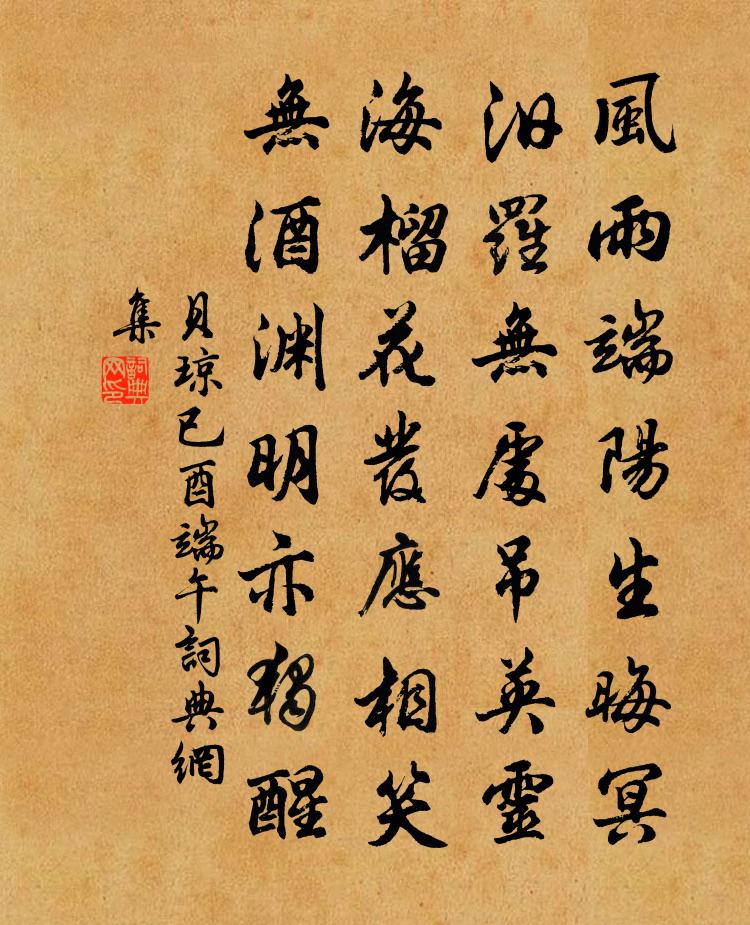 風雨端陽生晦冥
汨羅無處吊英靈
海榴花發應相笑
無酒渊明亦獨醒
貝琼已酉端午詞典網
集
詞典
网印